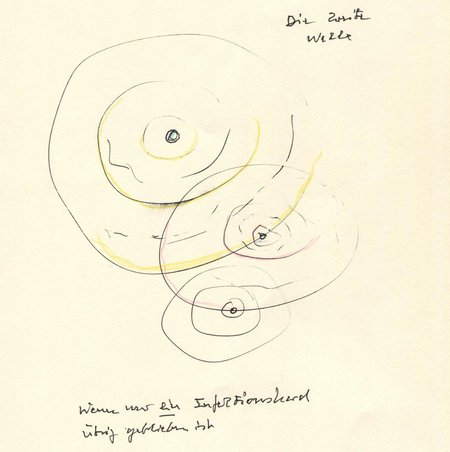 Die zweite
Welle
Wenn nur ein Infektionsherd
übrig geblieben ist